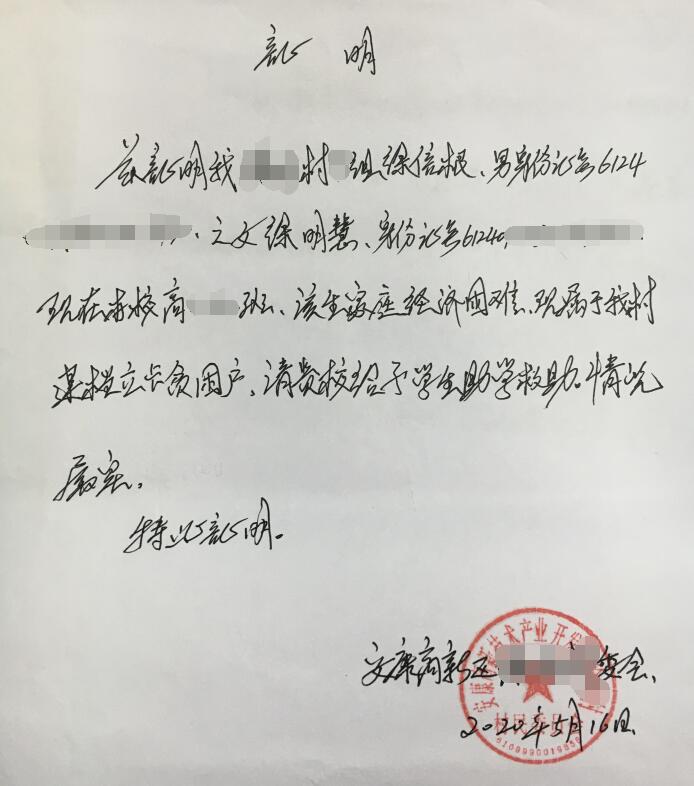 证 明
兹证明我村组徐信根、男身份证号6124
之女徐明慧、身份证号61240
现在贵校高班、该生家庭经济困难、现属于我村
建档立卡贫困户，请贵校给予学生助学救助。情况
属实。
特此证明。
安康高新区委会、
2020年5月16日
技术产业开发
村民委员会